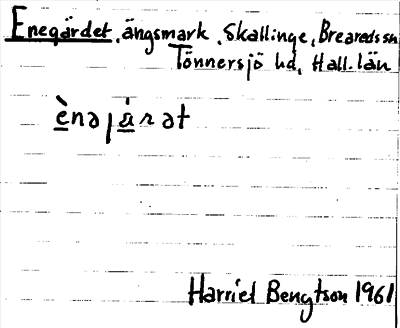 Enegärdet, ängsmark, Skallinge, Breareds sn
Tönnersjö hd, Hall. län
ènəjá̱rət
Harriet Bengtson 1961